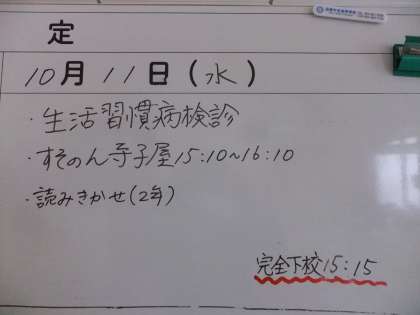 定
10月11日(水)
・生活習慣病検診
・すそのん寺子屋15:10~16:10
・読みきかせ(2年)
完全下校15:15